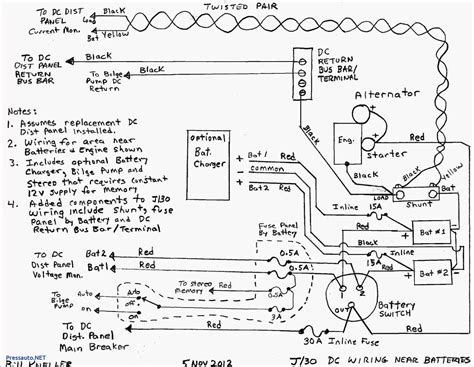 TWISTED PAIR
TO DC DIST
PANEL
Current Mon.
Black
Bat Yellow
TO DC
DIST PANEL
RETURN
BUS BAR
Black
To Bilge
Pump DC
Return
Black
DC
RETURN
BUS BAR/
TERMINAL
Black
Alternator
Eng.
Starter
Red
Black
Yellow
LOAD
Shunt
Bat
Notes:
1. Assumes replacement DC
Dist Panel installed.
2. Wiring for area near
Batteries & Engine shown
3. Includes optional Battery
Charger, Bilge Pump and
Stereo that requires constant
12V supply for memory
4. Added components to J/30
Wiring include Shunt, fuse
Panel by Battery and DC
Return Bus Bar/Terminal
optional
Bat.
Charger
Bat 1
Red
Common
Black
Bat 2
Red
Inline
15A
Black
Inline
15A
Red
Bat #1
Bat #2
Red
To DC
Dist Panel
Voltage Mon.
Bat2
Red
Bat1
Red
Fuse Panel
By Battery
0.5A
0.5A
3A
1
2
OFF
Battery
Switch
To
Bilge
Pump
Auto
on
Auto
off
on
To Stereo
memory
Red
Red
To DC
Dist. Panel
Main Breaker
Red
30A Inline Fuse
Red
Pressauto.NET
Bill Kneller
5 Nov 2012
J/30 DC WIRING NEAR BATTERIES